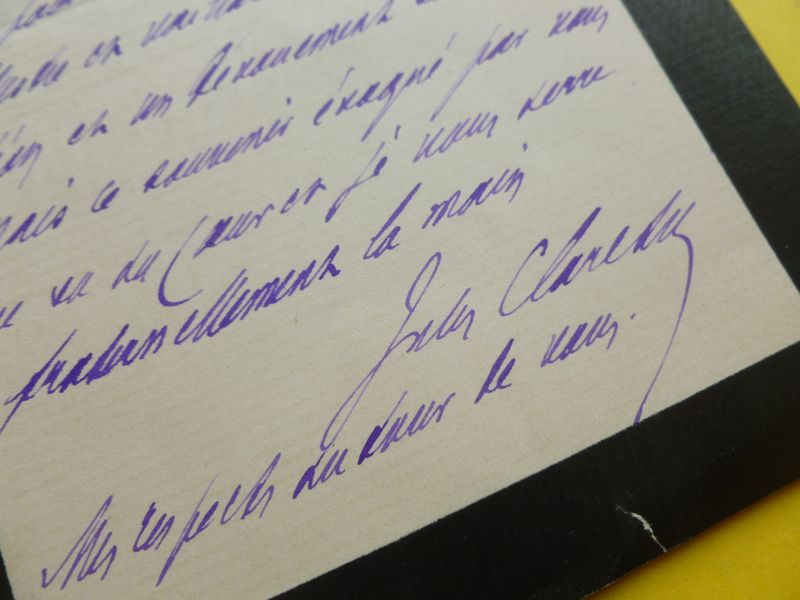 et un dévouement
ce souvenir évoqué par vous
va du Cœur et je vous serre
fraternellement la main
Jules Claretie
Mes respects autour de vous.